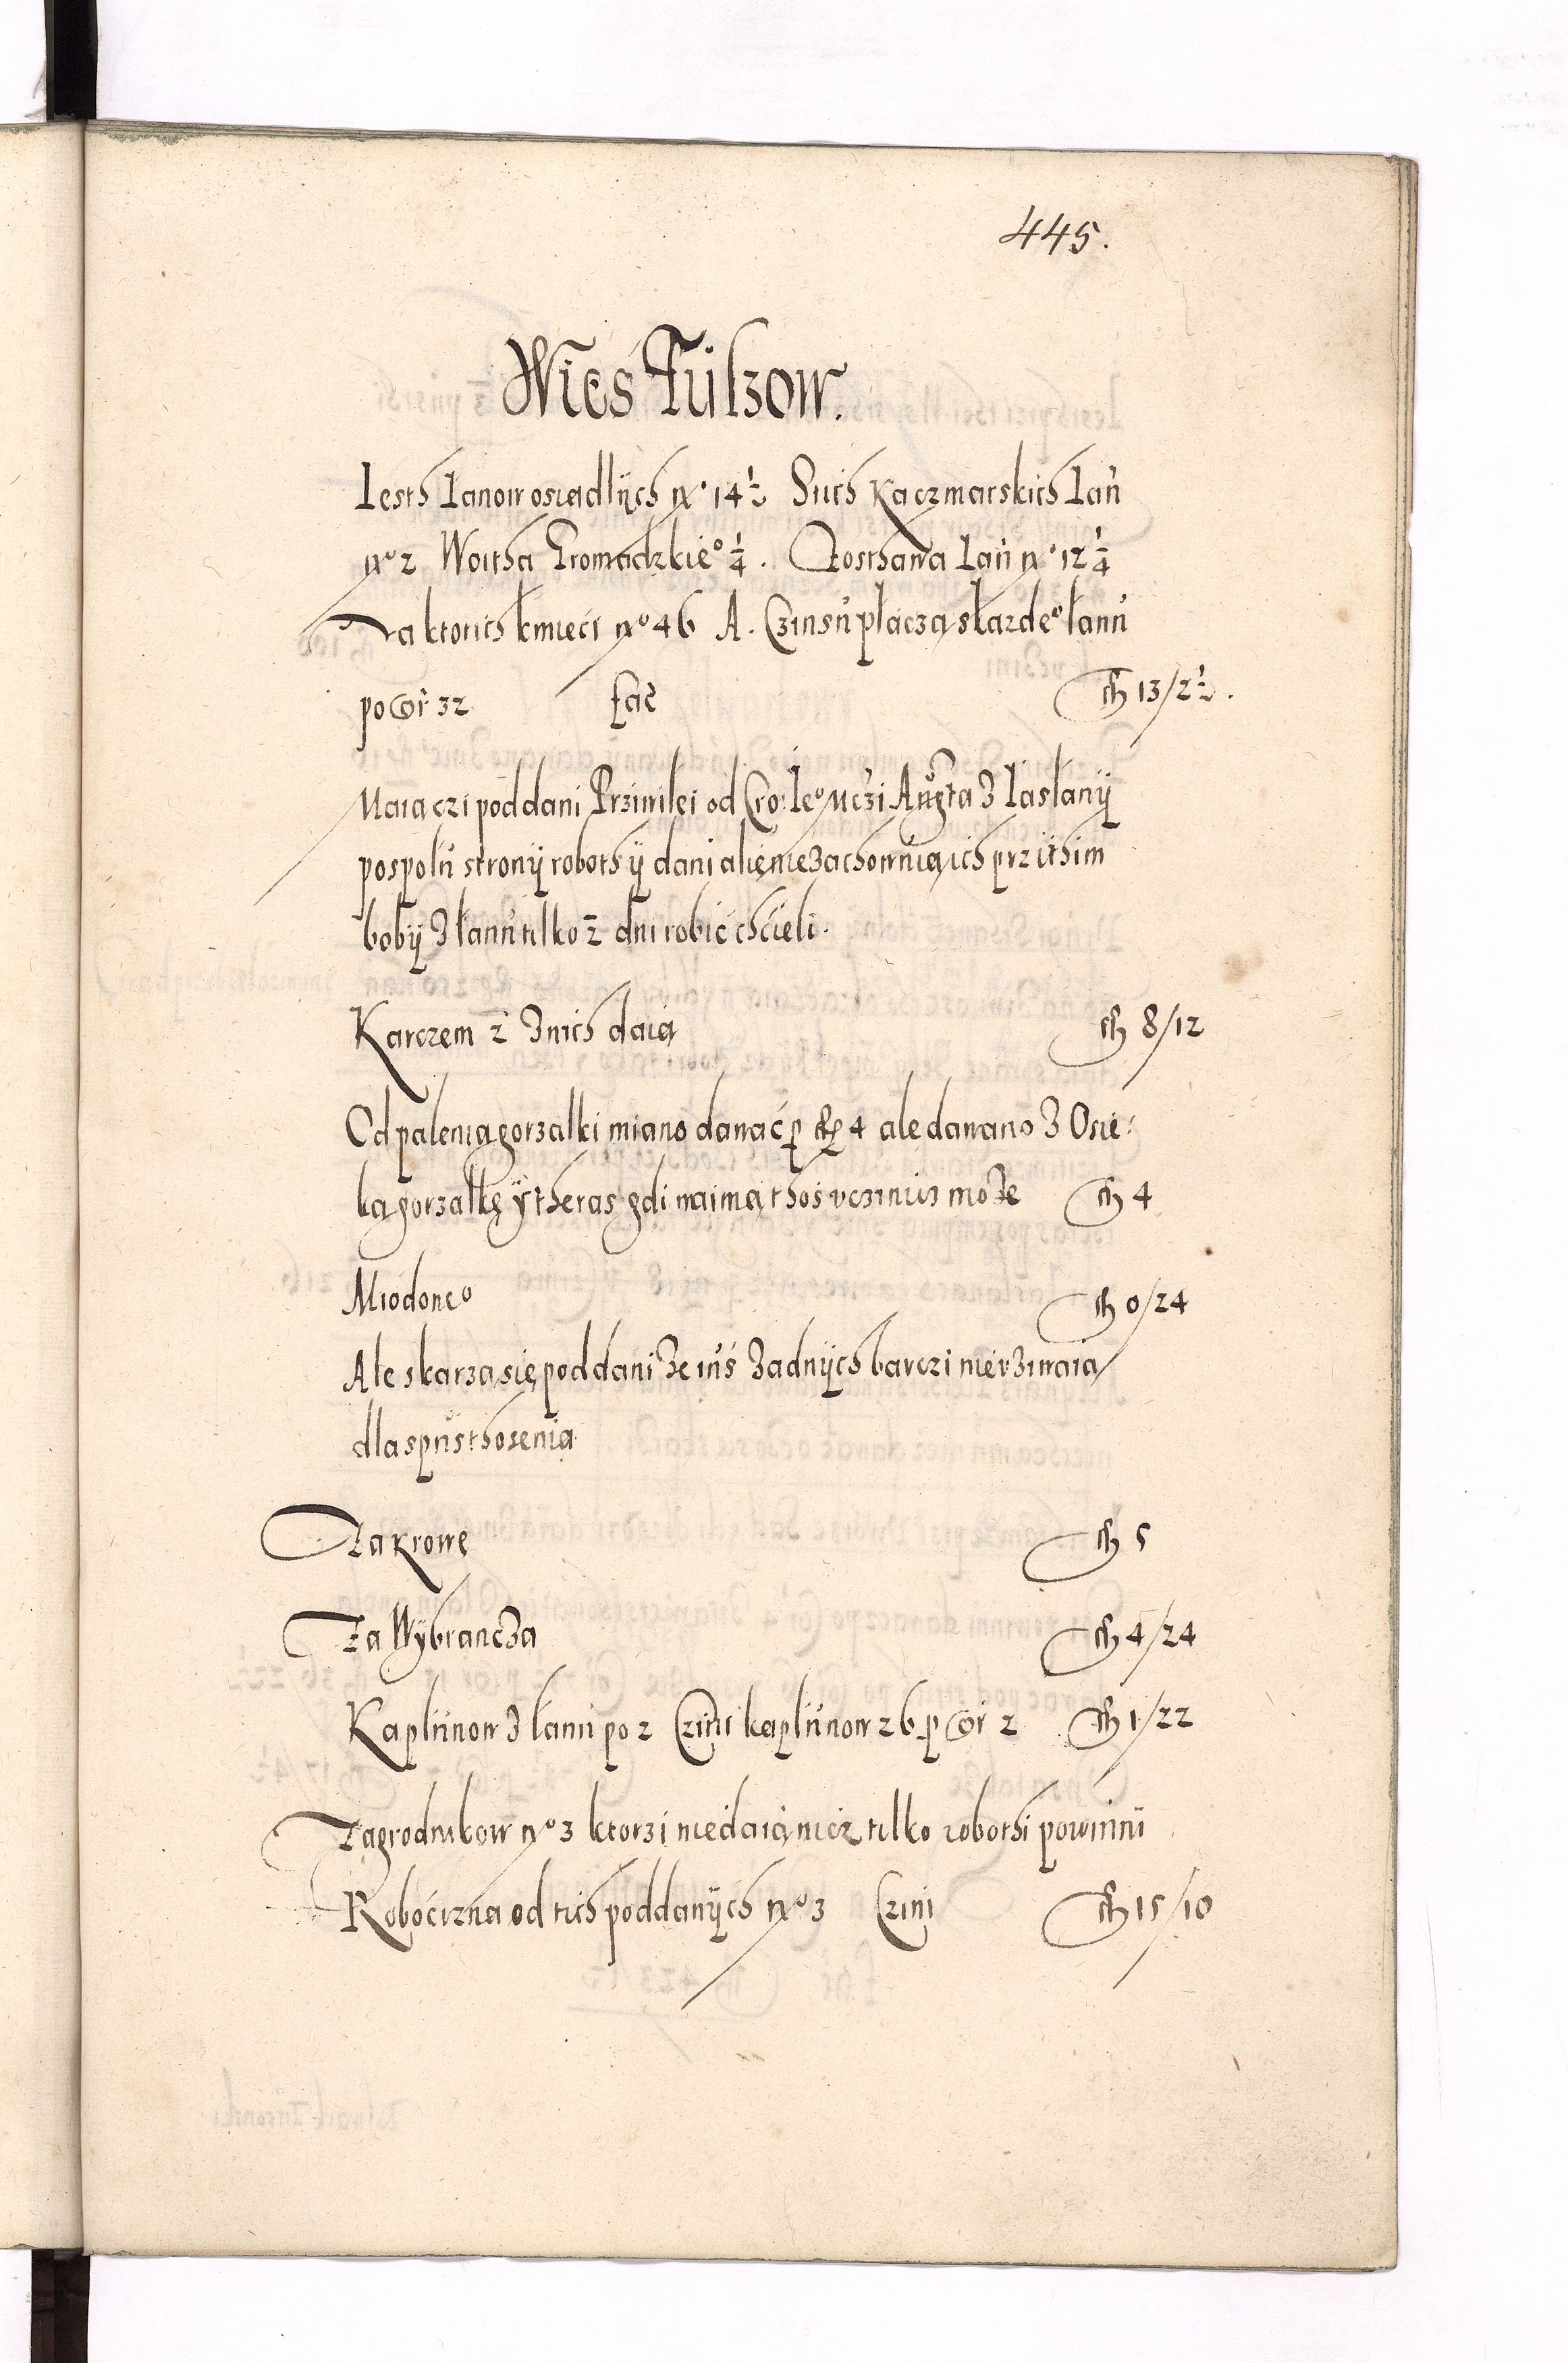 445.
Wieś Tulzow.
Iesth lanow osiadlÿch nº 14½ Stich Kaczmarskich lan
nº 2 Woitha Gromadzkieº ¼. Zosthawa lan nº 12¼
Na ktorich kmieci nº 46 A. Czinsu placzą skazdeº łanu
po gr 32 fac fl 13/2½.
Maią czi poddani Prziwilei od Cro: Ieº Mczi Augta z laskanÿ
pospolu stronÿ robothÿ dani alie nie zachowuią ich prz ithim
boby z łanu tilko 2 dni robić chcieli.
Karczem 2 z nich daią fl 8/12
Od palenia gorzalki miano dawać p fl 4 ale dawano z Osie:
ka gorzałkę ÿ theras gdi naimą thoś vczinics może fl 4
Miodoweº fl 0/24
Ale skarzą się poddani że iuś żadnÿch barczi nie vżiwaią
dla spusthosenia
Za krowę fl 5
Za Wÿbrancza fl 4/24
Kaplunow z łanu po 2 Czini kaplunow 26 p gr 2 fl 1/22
Zagrodnikow nº 3 ktorzi nie daią nicz tilko robothi powinni
Robocizna od tich poddanÿch nº 3 Czini fl 15/10